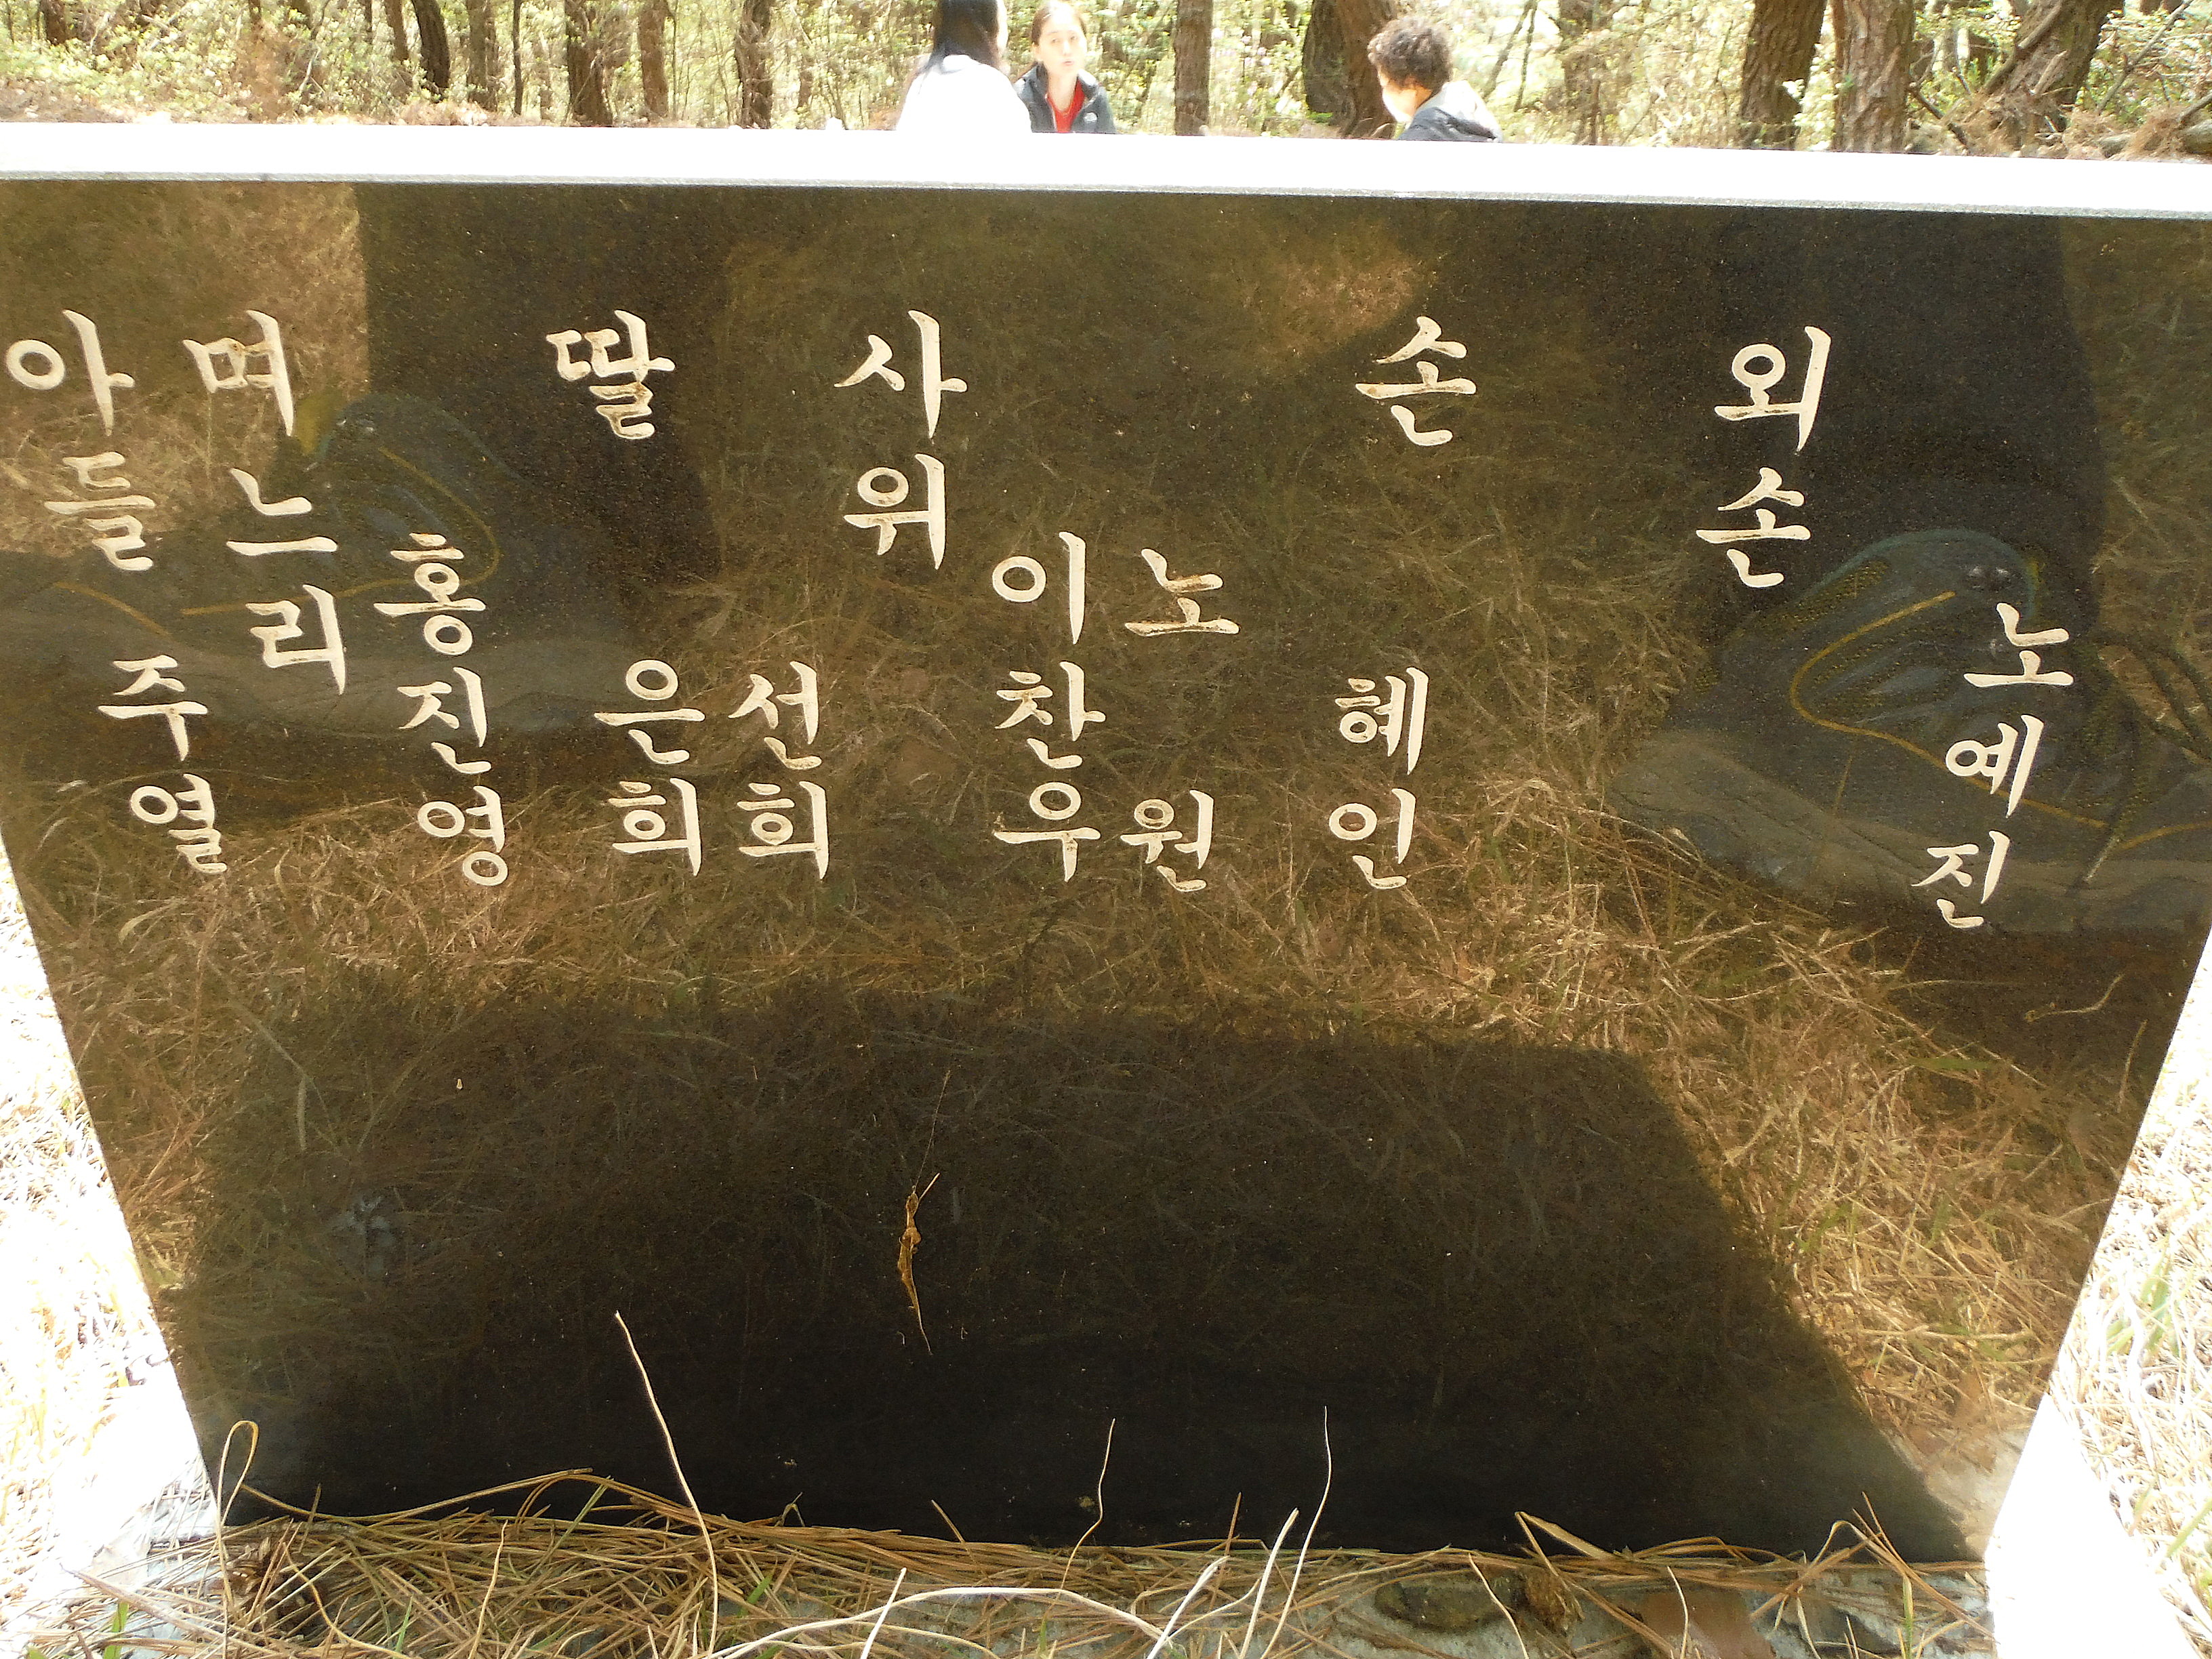 아들
주열
며느리
홍진영
딸
은희
선희
사위
이찬우
노원
손
혜인
외손
노예진